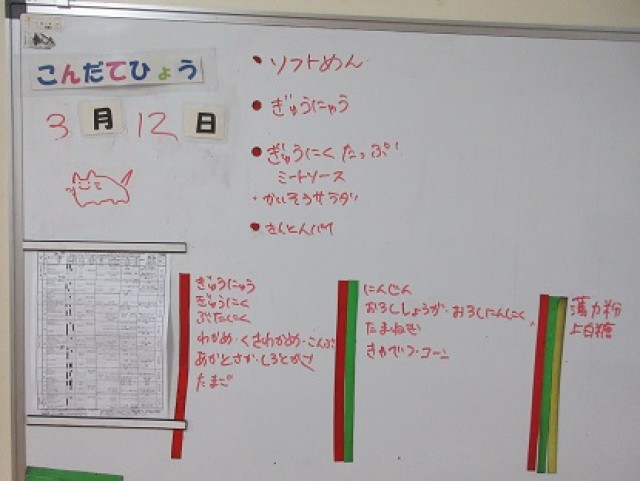 こんだてひょう
3月12日
・ソフトめん
・ぎゅうにゅう
・ぎゅうにくたっぷり
ミートソース
・かいそうサラダ
・きんとんパイ
ぎゅうにゅう
ぎゅうにく
ぶたにく
わかめ・くきわかめ・こんぶ
あかとさか・しろとさか
たまご
にんじん
おろししょうが・おろしにんにく
たまねぎ
きゃべつ・コーン
薄力粉
上白糖